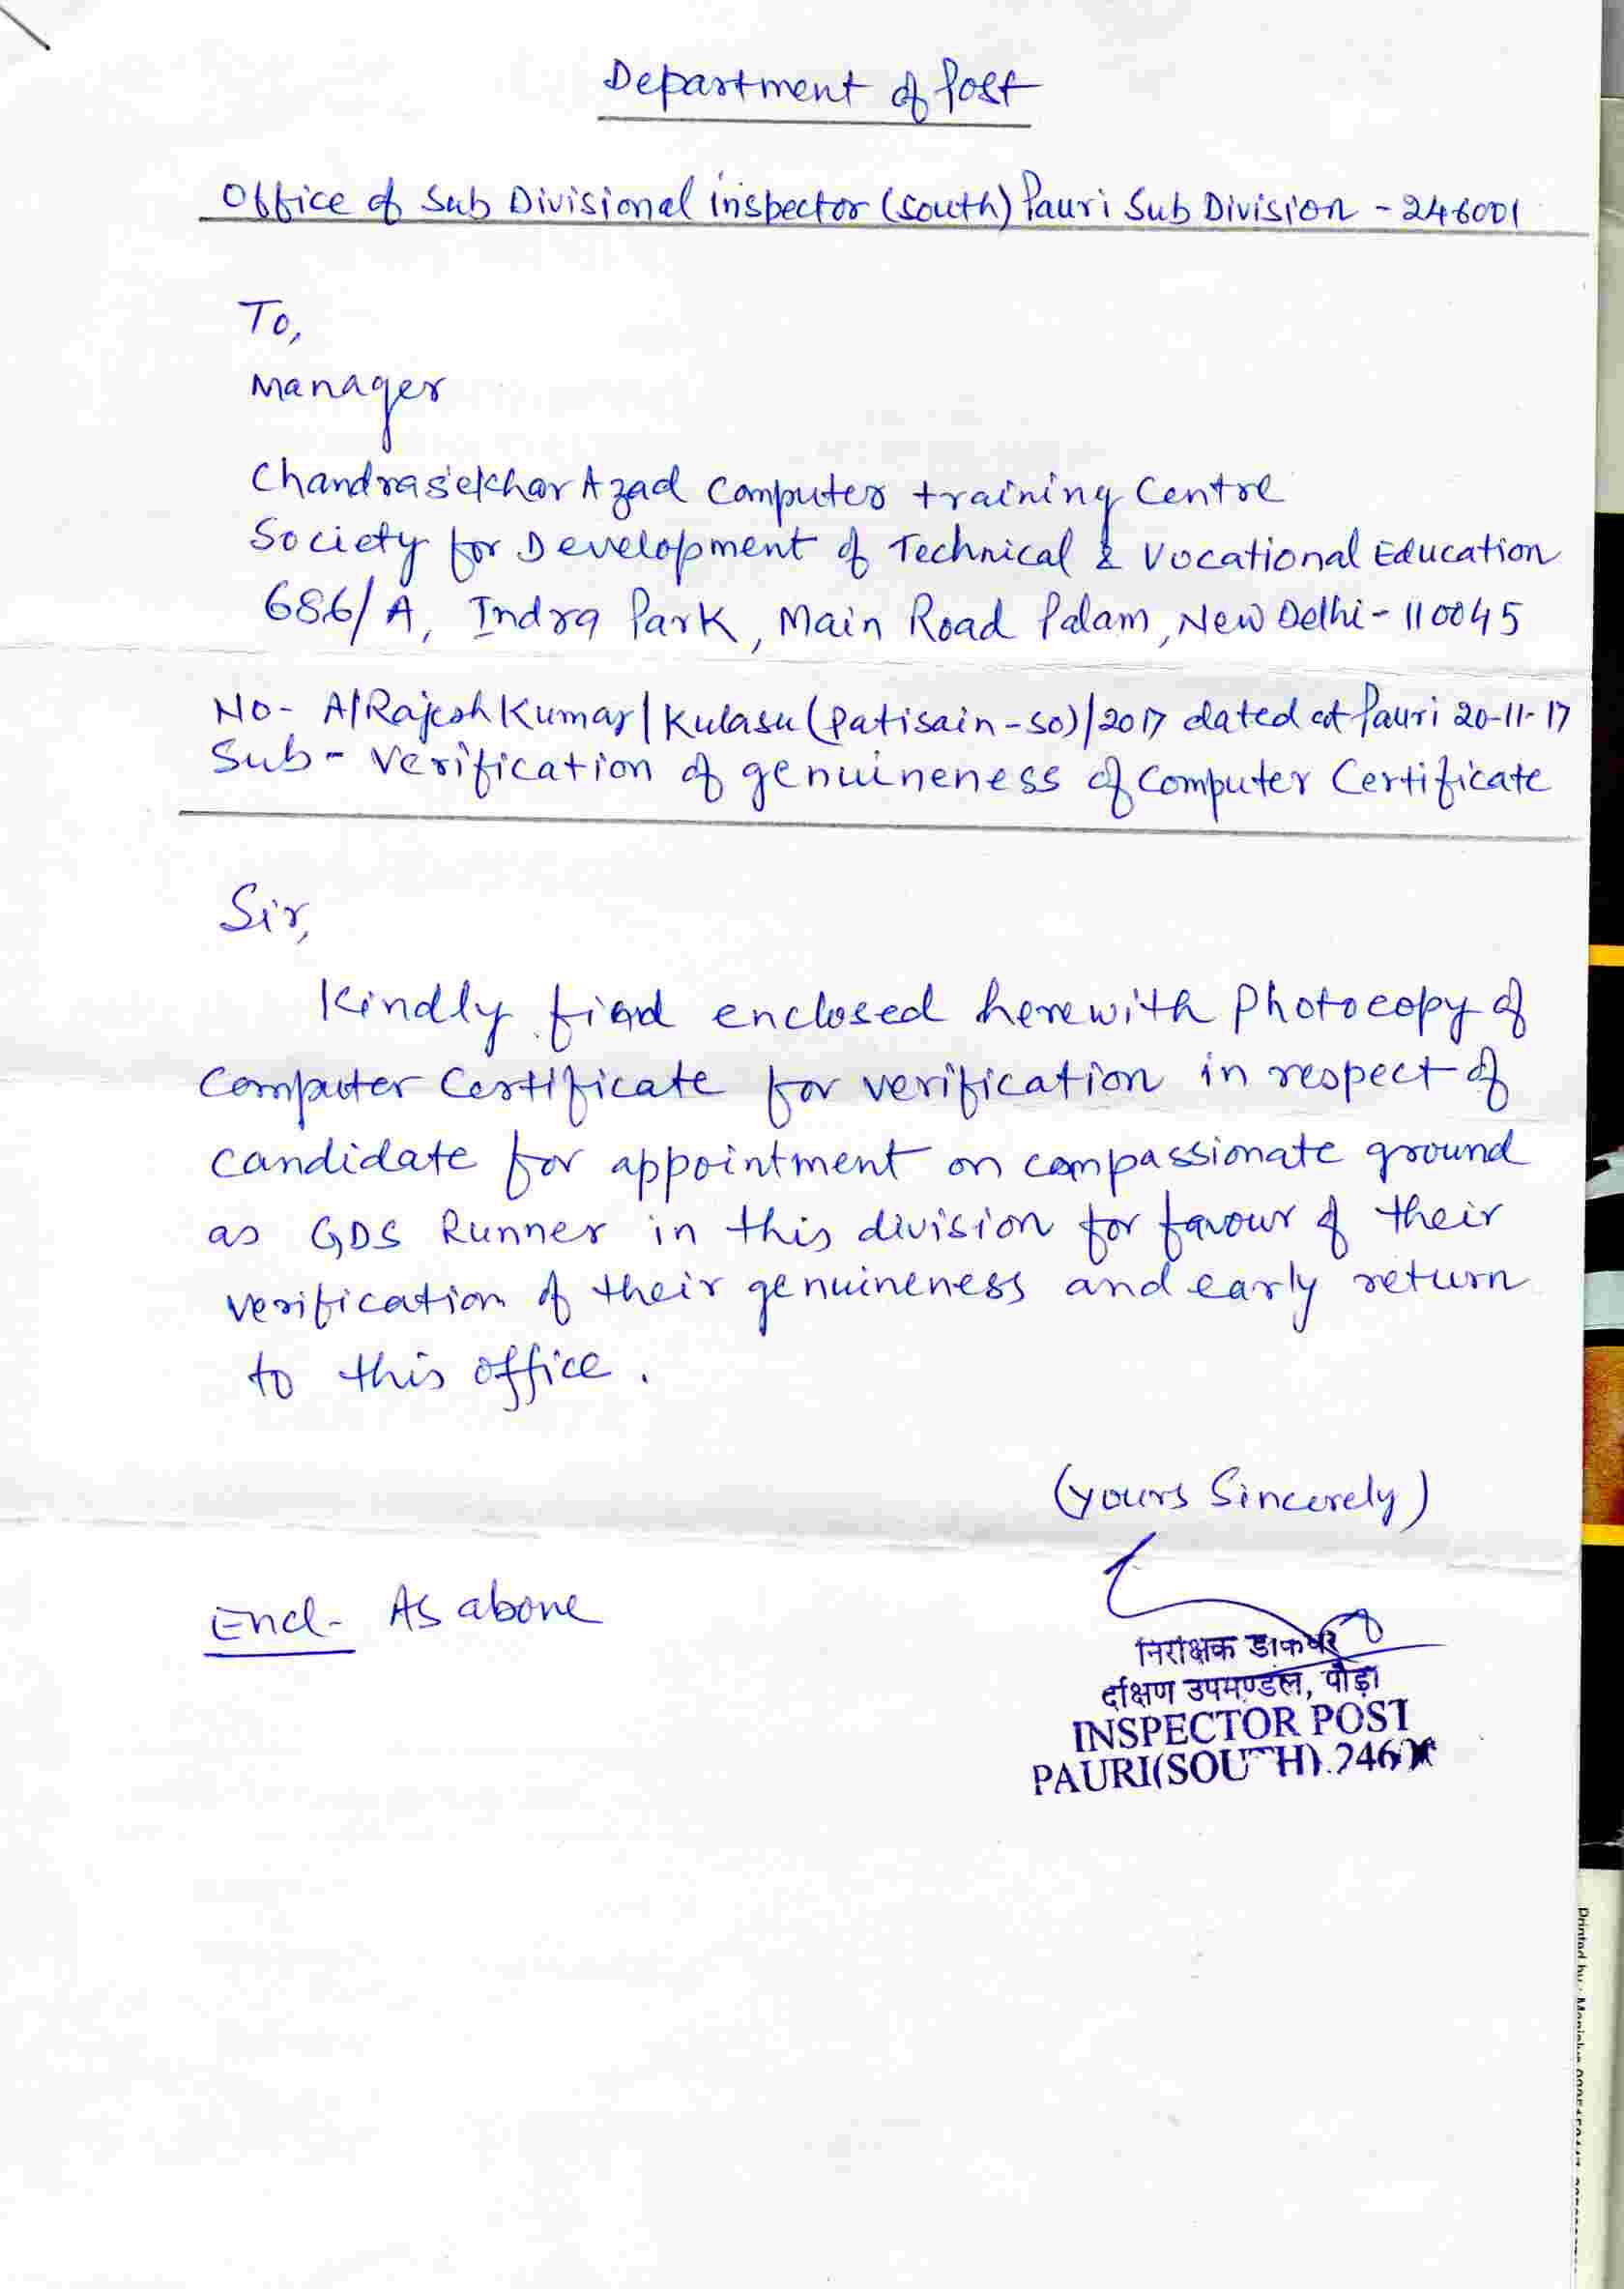 Department of Post
Office of Sub Divisional inspector (South) Pauri Sub Division - 246001
To,
Manager
Chandrasekhar Azad Computer training Centre
Society for Development of Technical & Vocational Education
686/A, Indra Park, Main Road Palam, New Delhi - 110045
No- A/Rajesh Kumar/Kulasu (Patisain-SO)/2017 dated at Pauri 20-11-17
Sub- Verification of genuineness of Computer Certificate
Sir,
Kindly find enclosed herewith Photocopy of
Computer Certificate for verification in respect of
candidate for appointment on compassionate ground
as GDS Runner in this division for favour of their
verification of their genuineness and early return
to this office.
(yours Sincerely)
Encl- As above
निरीक्षक डाकघर
दक्षिण उपमण्डल, पौड़ी
INSPECTOR POST
PAURI(SOUTH).
Printed by :